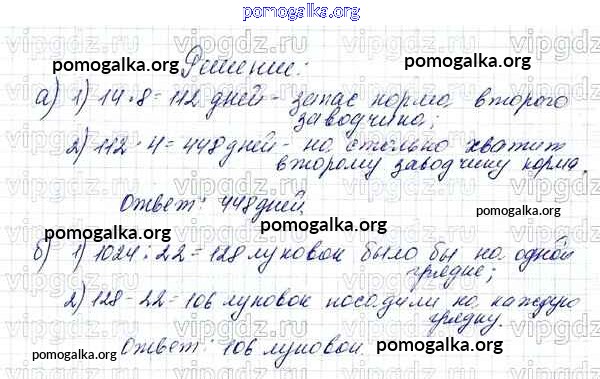 pomogalka.org
Решение:
pomogalka.org pomogalka.org
а) 1) 14 · 8 = 112 дней - запас корма второго
заводчика;
2) 112 · 4 = 448 дней - на столько хватит
второму заводчику корма.
pomogalka.org pomogalka.org
Ответ: 448 дней.
pomogalka.org pomogalka.org
б) 1) 1024 : 22 = 128 луковок было бы на одной
грядке;
pomogalka.org pomogalka.org
2) 128 - 22 = 106 луковок посадили на каждую
грядку.
pomogalka.org pomogalka.org
Ответ: 106 луковок.
vipgdz.ru